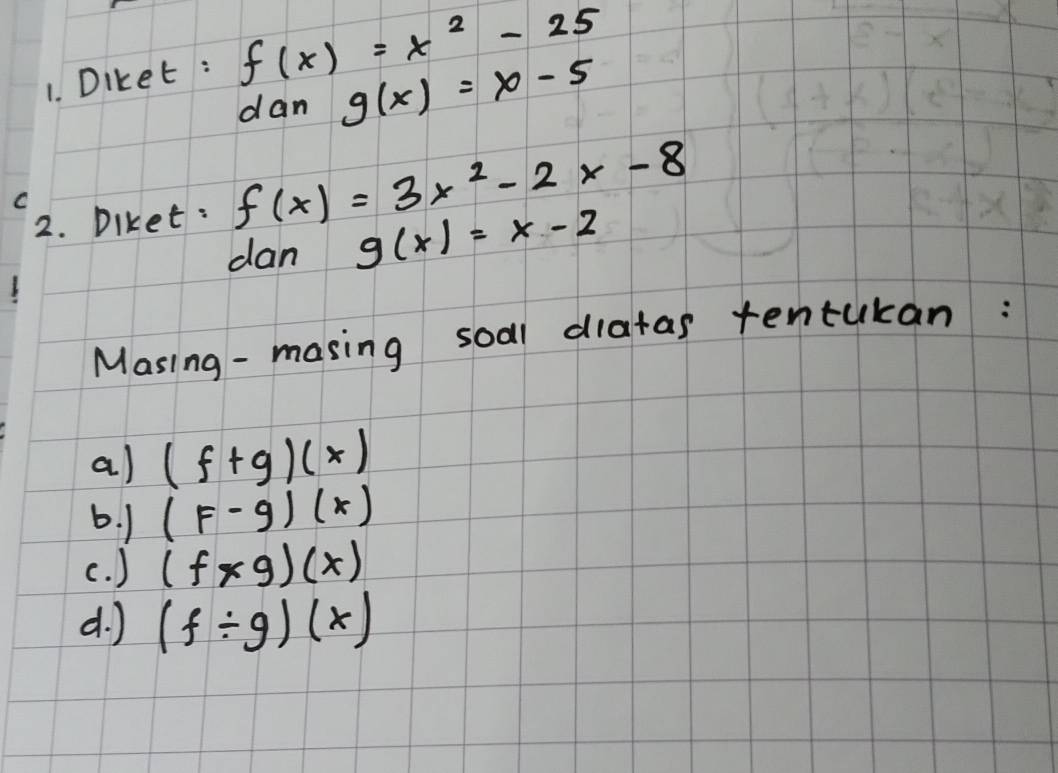 1. Diket : f(x) = x² - 25
dan g(x) = x - 5
2. Diket : f(x) = 3x² - 2x - 8
dan g(x) = x - 2
Masing - masing soal diatas tentukan :
a.) (f+g)(x)
b.) (F-g)(x)
c.) (f×g)(x)
d.) (f÷g)(x)